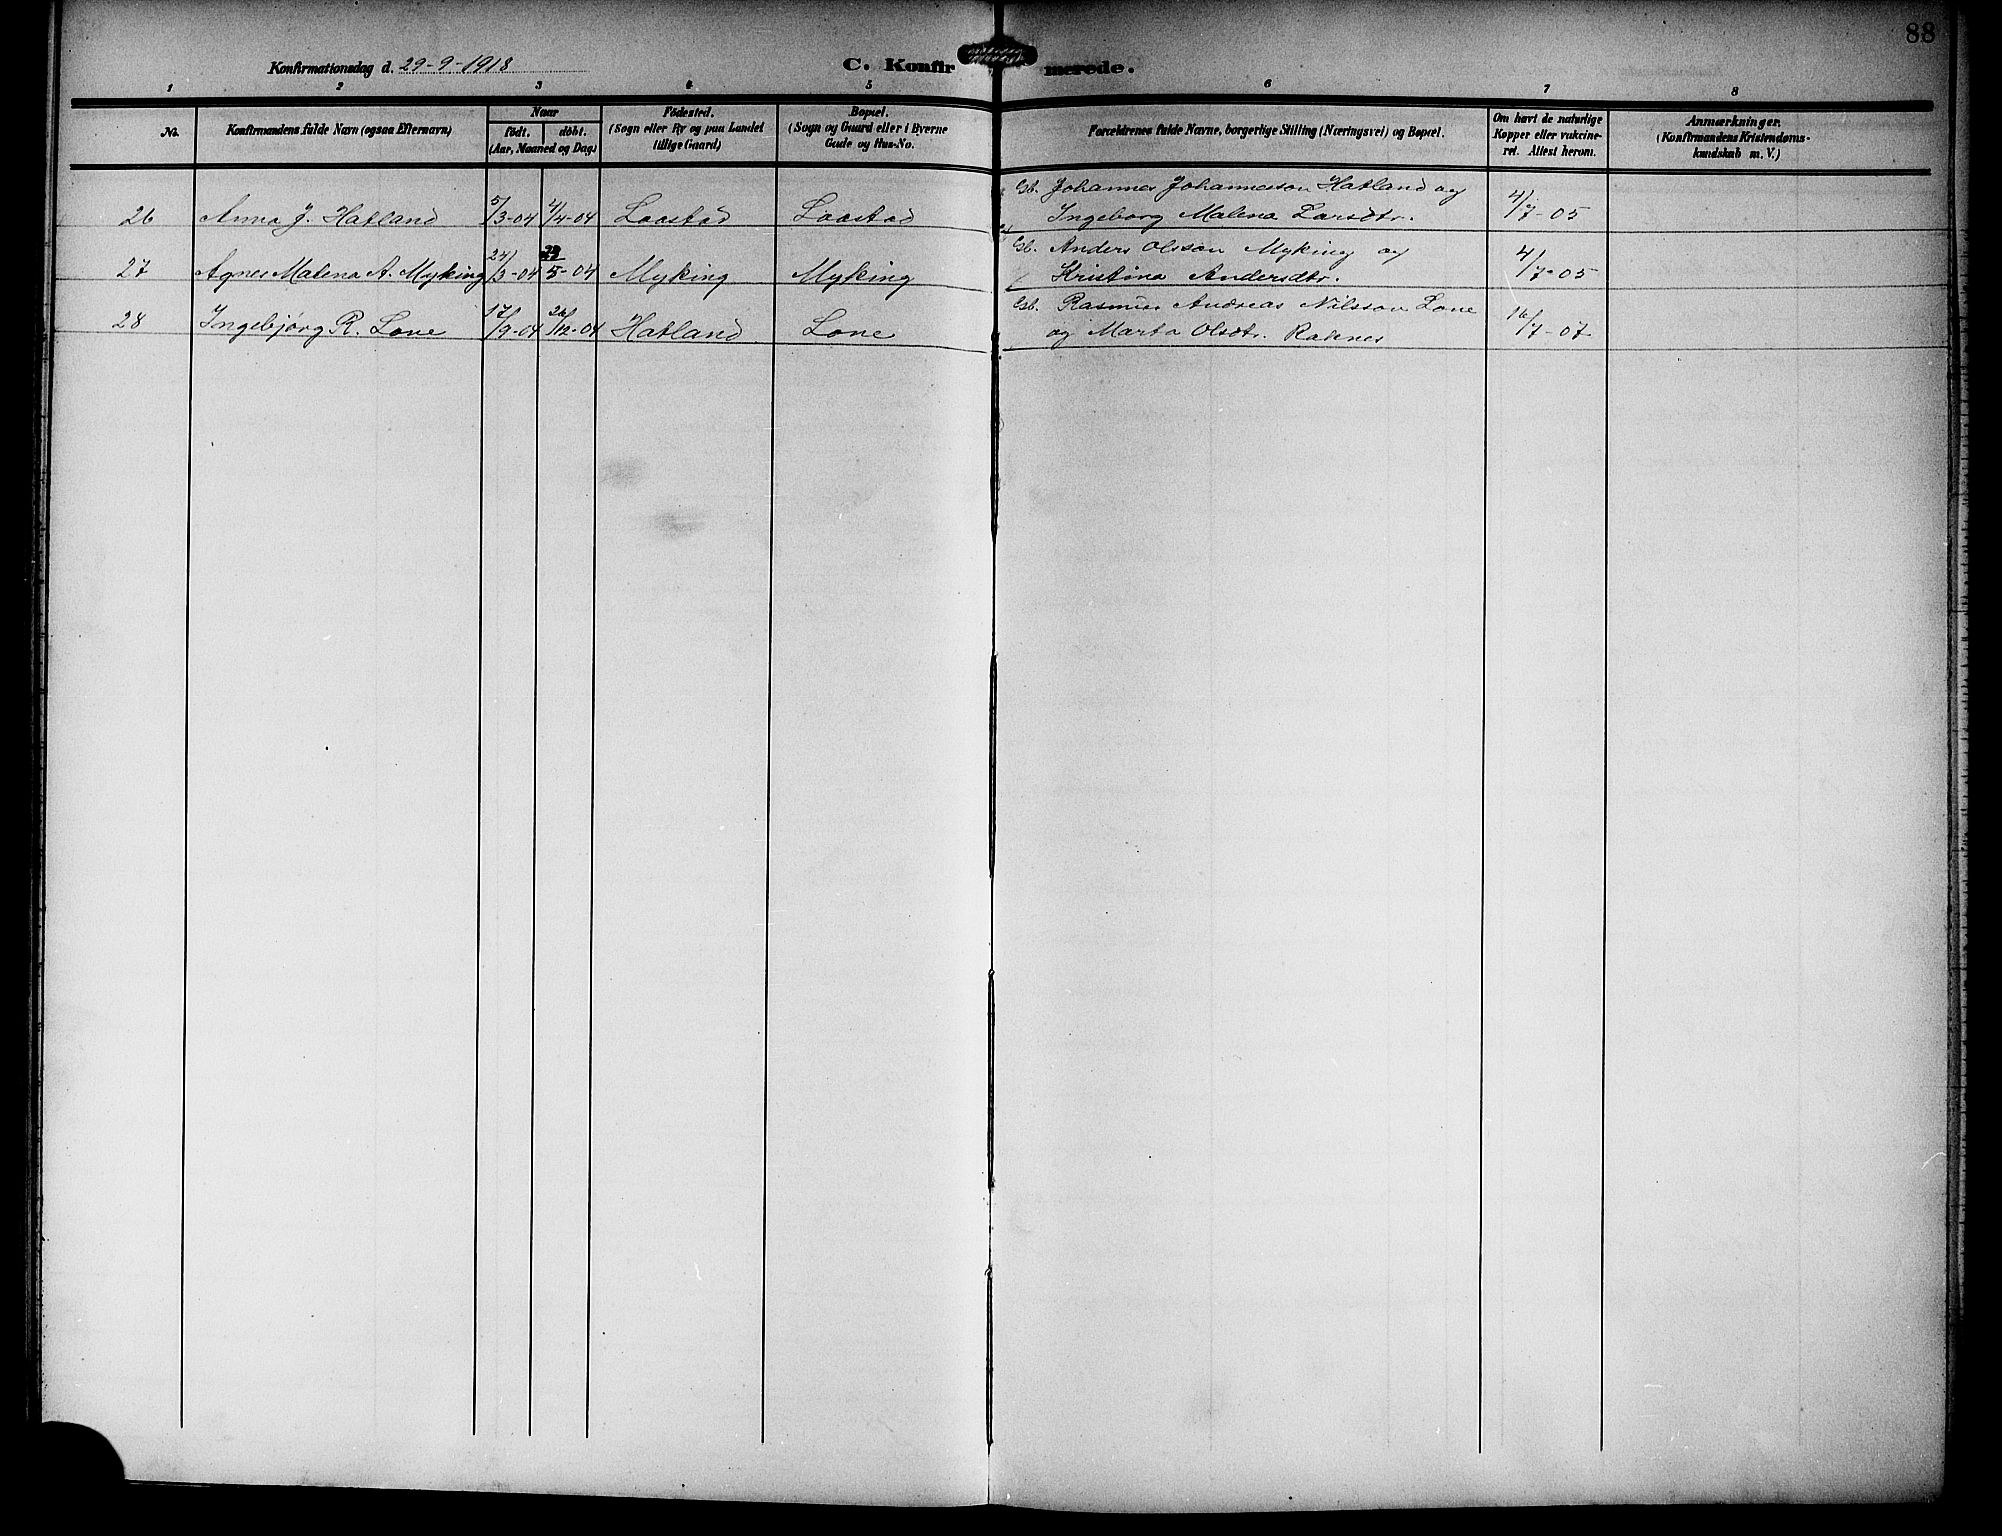 88
Konfirmationsdag d. 29-9-1918
C. Konfirmerede.
1 2 3 4 5 6 7 8
No.
Konfirmandens fulde Navn (ogsaa Efternavn)
Naar
født. døbt.
(Aar, Maaned og Dag)
Fødested.
(Sogn eller By og paa Landet
tillige Gaard)
Bopæl.
(Sogn og Gaard eller i Byerne
Gade og Hus-No.
Forældrenes fulde Navne, borgerlige Stilling (Næringsvei) og Bopæl.
Om havt de naturlige
Kopper eller vakcine-
ret. Attest herom.
Anmærkninger.
(Konfirmandens Kristendoms-
kundskab m. V.)
26 Anna J. Hatland 5/3-04 4/4-04 Laastad Laastad
Gb. Johannes Johannesson Hatland og
Ingeborg Malena Larsdtr. 4/7-05
27 Agnes Malena A. Myking 24/3-04 5-04 Myking Myking
Gb. Anders Olsson Myking og
Kristina Andersdtr. 4/7-05
28 Ingebjørg R. Lone 17/9-04 26/12-04 Hatland Lone
Gb. Rasmus Andreas Nilsson Lone
og Marta Olsdtr. Raknes 16/7-07